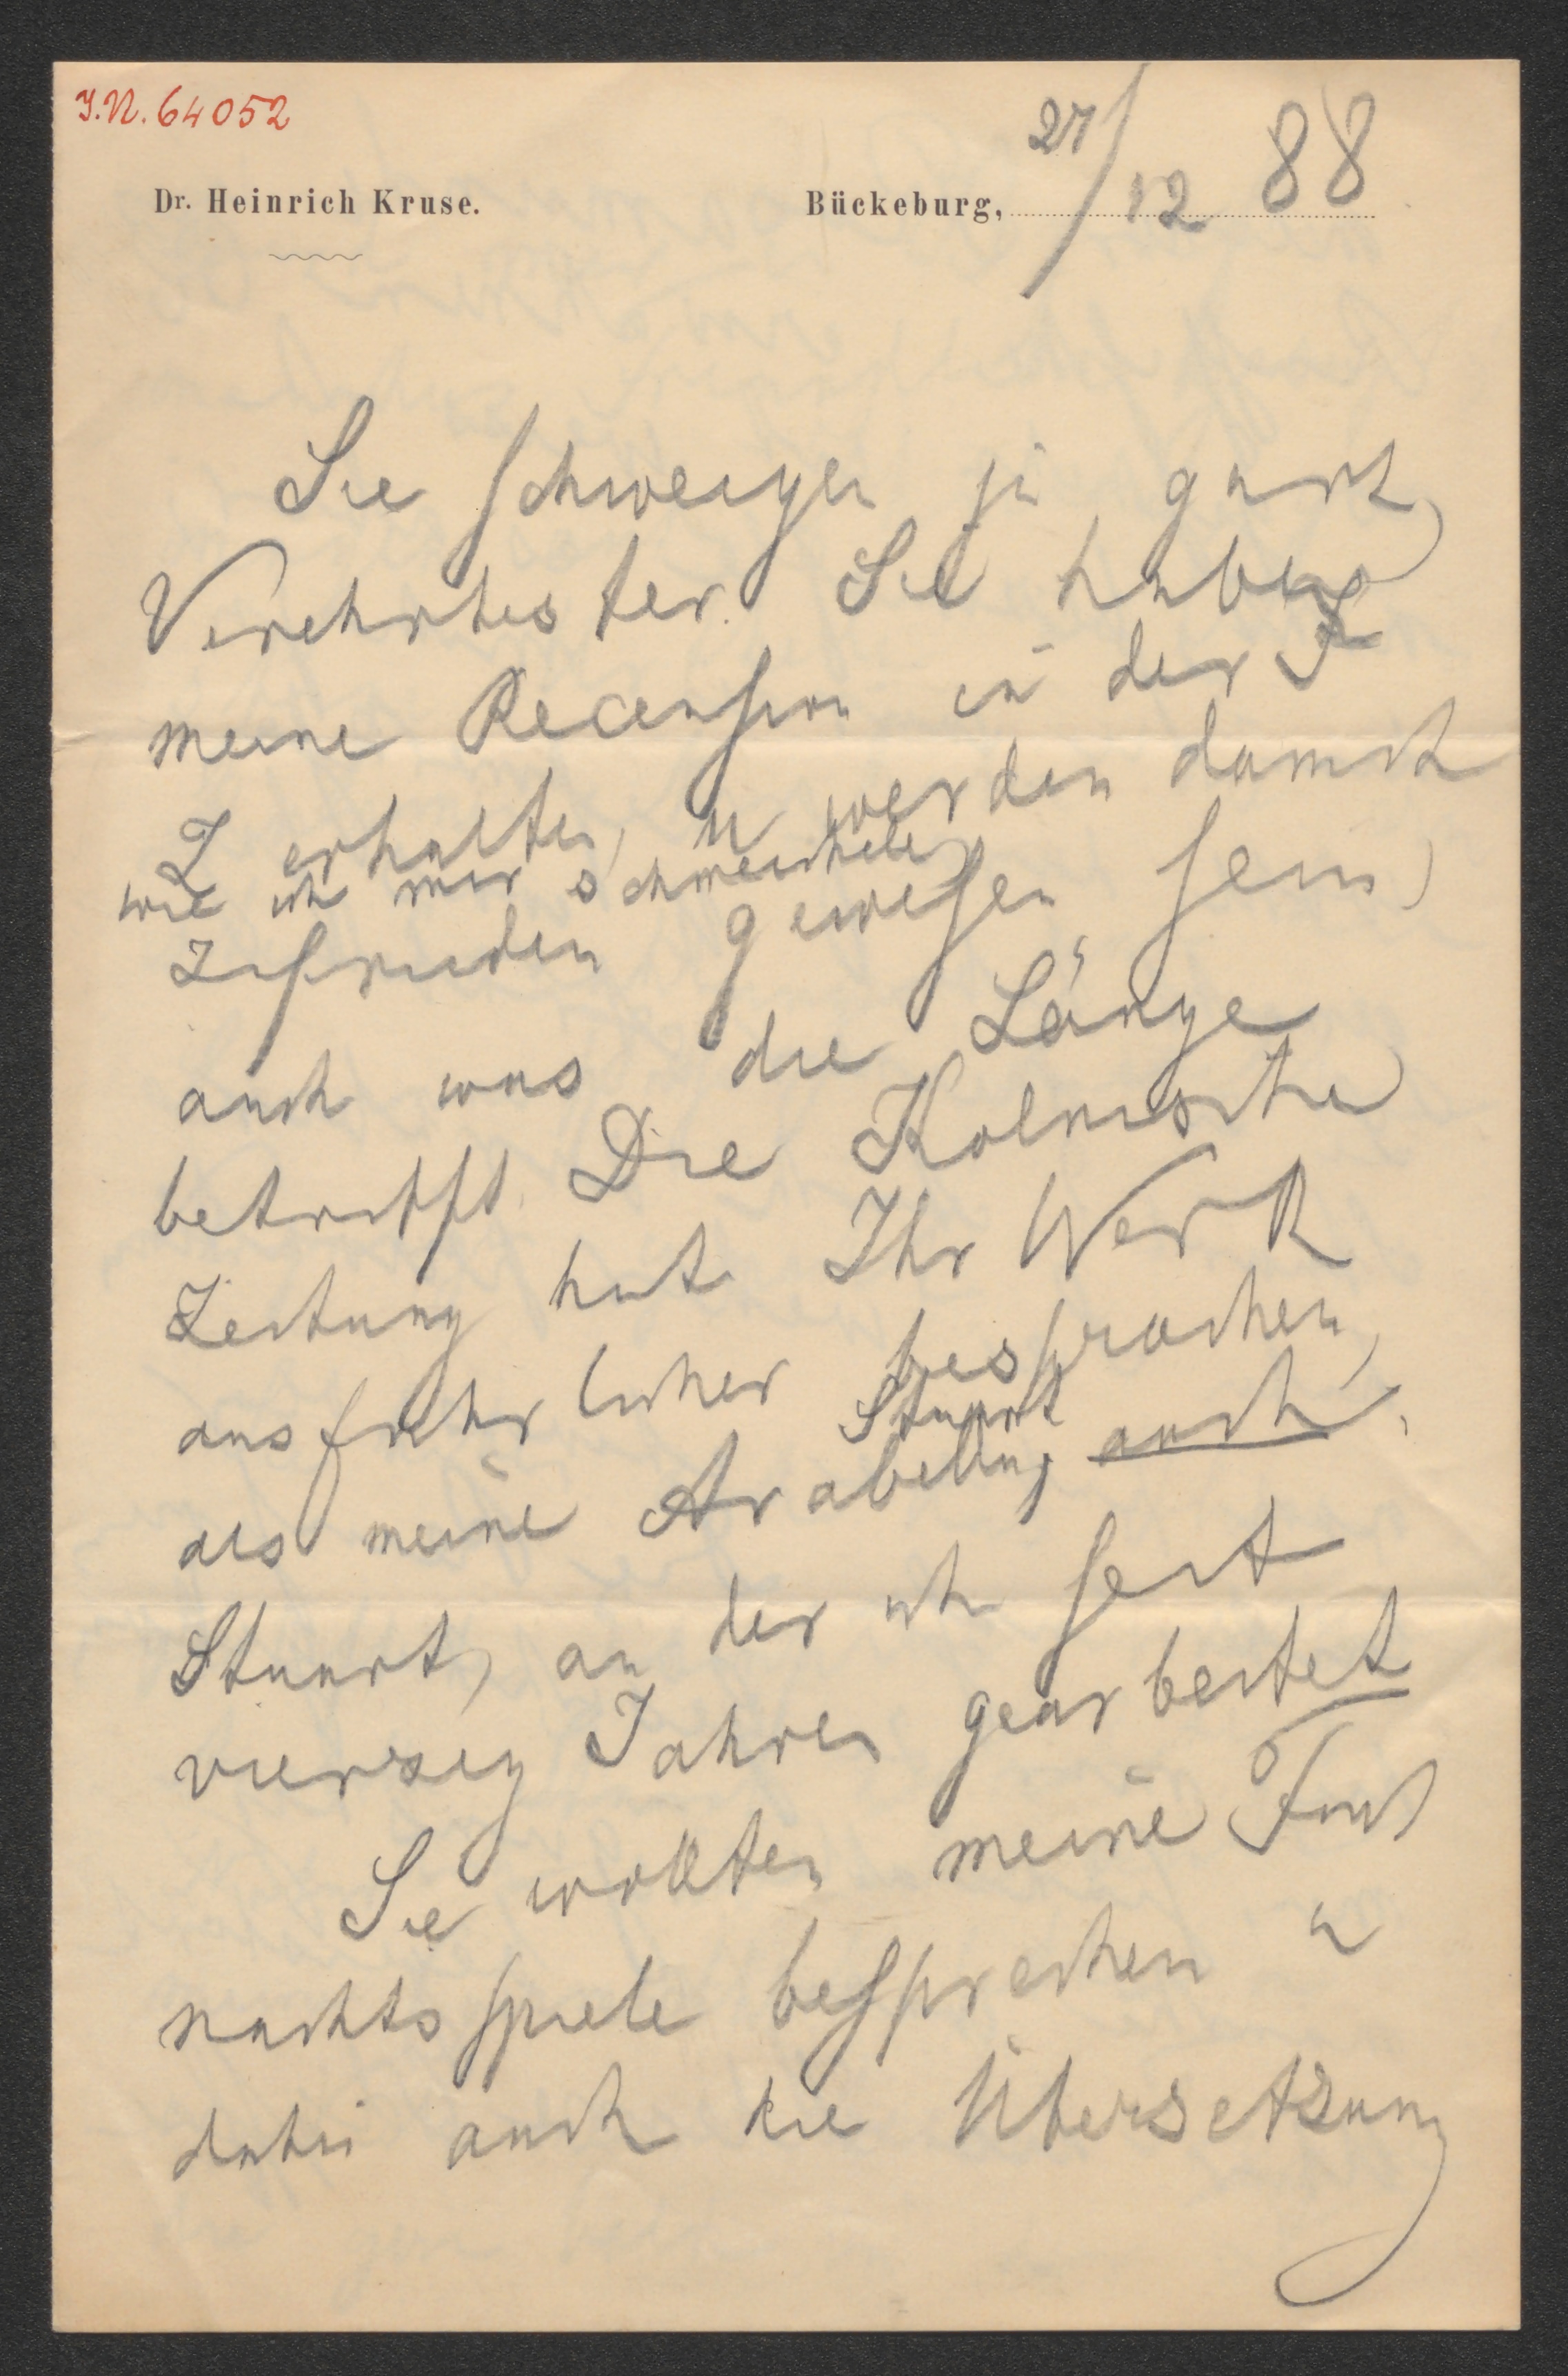 J.N. 64052
27/12 88
Dr. Heinrich Kruse.
Bückeburg,
Sie schweigen ja ganz,
Verehrtester. Sie haben
meine Recension in der
Z erhalten, u werden damit
wie ich mir schmeichele
zufrieden gewesen sein,
auch was die Länge
betrifft. Die Kölnische
Zeitung hat Ihr Werk
ausführlicher besprochen,
Stuart
als meine Arabella, auch
Stuart, an der ich seit
vierzig Jahren gearbeitet
Sie wollten meine Fast
nachtsspiele besprechen u
dabei auch die Übersetzung